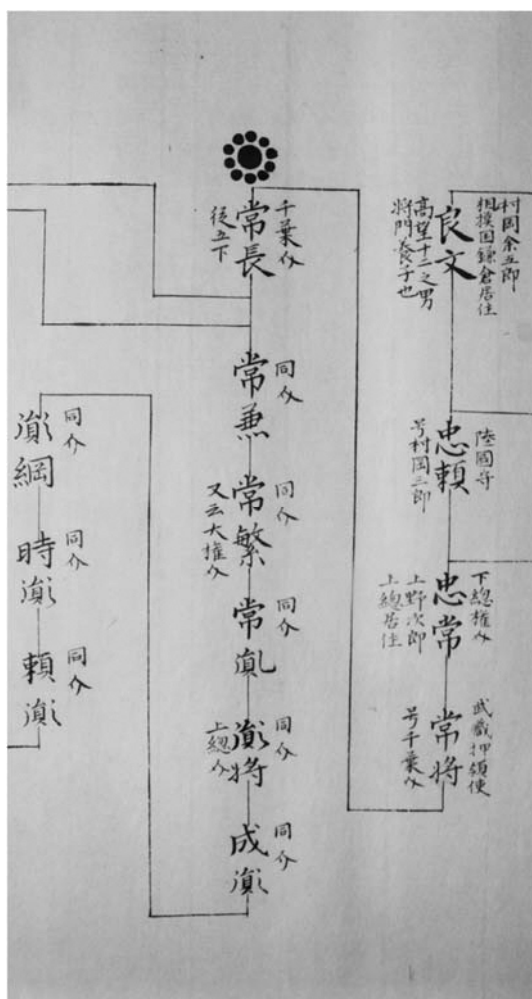 村岡余五郎
相摸国鎌倉居住
良文
高望十二之男
将門養子也
陸國守
忠頼
号村岡三郎
下總権介
忠常
上野次郎
上總居住
武蔵押領使
常将
号千葉介
千葉介
常長
従五下
同介
常兼
同介
常繁
又云大権介
同介
常胤
同介
胤将
上總介
同介
成胤
同介
胤綱
同介
時胤
同介
頼胤